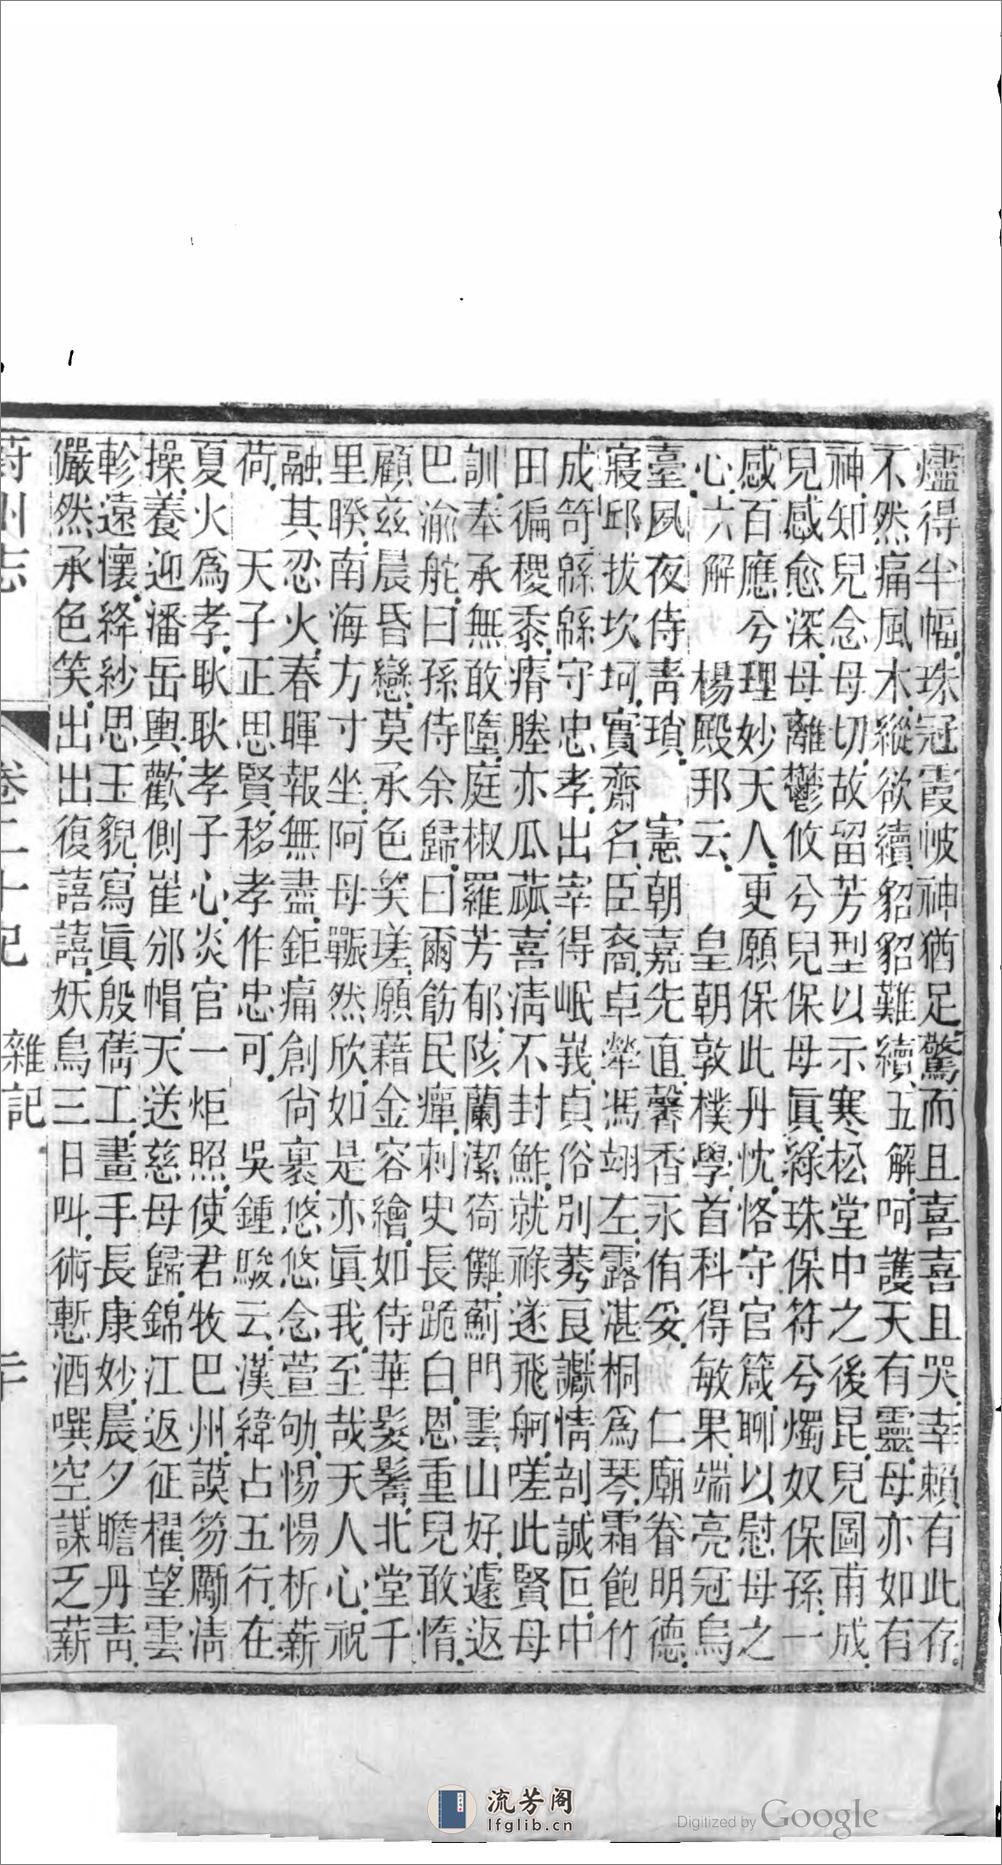 燼得半幅珠冠霞帔神猶足驚而且喜喜且哭幸賴有此存
不然痛風木縱欲續貂貂難續五解呵護天有靈母亦如有
神知兒念母切故留芳型以示寒松堂中之後昆兒圖甫成
兒感愈深母離鬱攸兮兒保母眞綠珠保符兮燭奴保孫一
感百應兮理妙天人更願保此丹忱恪守官箴聊以慰母之
心六解 楊殿邦云 皇朝敦樸學首科得敏果端亮冠烏
臺夙夜侍靑瑣 憲朝嘉先直馨香永侑妥 仁廟眷明德
寢邱拔坎坷實齋名臣裔卓犖馮翊左露湛桐爲琴霜飽竹
成笴緜緜守忠孝出宰得岷峩貞俗別莠良讞情剖誠叵中
田徧稷黍瘠塍亦瓜蓏喜淸不封鮓就祿遂飛舸嗟此賢母
訓奉承無敢墮庭椒羅芳郁陔蘭潔猗儺薊門雲山好遽返
巴渝舵曰孫侍余歸曰爾飭民癉刺史長跪白恩重兒敢惰
顧兹晨昏戀莫承色笑瑳願藉金容繪如侍華髮鬌北堂千
里睽南海方寸坐阿母囅然欣如是亦眞我至哉天人心祝
融其忍火春暉報無盡鉅痛創尙裹悠悠念萱劬惕惕析薪
荷 天子正思賢移孝作忠可 吳鍾駿云漢緯占五行在
夏火爲孝耿耿孝子心炎官一炬照使君牧巴州謨笏勵淸
操養迎潘岳輿歡側崔邠帽天送慈母歸錦江返征櫂望雲
軫遠懷絳紗思玉貌寫眞殷儁工畫手長康妙晨夕瞻丹靑
儼然承色笑出出復譆譆妖鳥三日叫術慙酒噀空謀乏薪
蔚州志 卷二十記 雜記